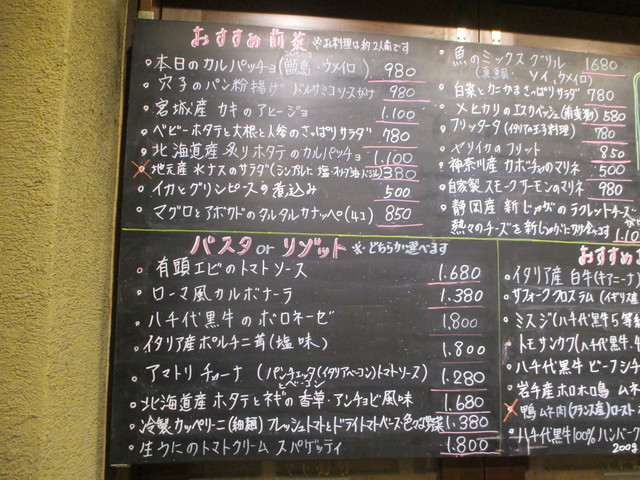 おすすめ前菜 ※お料理は約2人前です
本日のカルパッチョ(甑島・ウメイロ) 980
穴子のパン粉揚げ バルサミコソースがけ 980
宮城産 カキのアヒージョ 1.100
ベビーホタテと大根と人参のさっぱりサラダ 780
北海道産 炙りホタテのカルパッチョ 1.100
地元産 水ナスのサラダ(シンプルに塩・オリーブ油・バジル) 380
イカとグリンピースの煮込み 500
マグロとアボカドのタルタルカナッペ(4コ) 850
魚のミックスグリル 1680
(真鯛・ソイ、ウメイロ)
白菜とカニかまさっぱりサラダ 780
メヒカリのエスカベッシュ(南蛮漬) 580
フリッタータ(イタリアの玉子料理) 780
ヤリイカのフリット 850
神奈川産 カボチャのマリネ 500
自家製 スモークサーモンのマリネ 980
静岡産 新じゃがのラクレットチーズ
熱々のチーズを新じゃがに 1.10
パスタ or リゾット ※どちらか選べます
有頭エビのトマトソース 1.680
ローマ風カルボナーラ 1.380
八千代黒牛のボロネーゼ 1.800
イタリア産ポルチニ茸(塩味) 1.800
アマトリチャーナ (パンチェッタ(イタリアベーコン)トマトソース) 1.280
北海道産 ホタテとネギの香草・アンチョビ風味 1.680
冷製カッペリーニ(細麺) フレッシュトマトとドライトマトベース・色々な野菜 1.380
生うにのトマトクリーム スパゲッティ 1.800
おすすめ
イタリア産 白牛(キアニーナ)
サフォーククロスラム (イギリス産
ミスジ(八千代黒牛5等級
トモサンカク(八千代黒牛.4
八千代黒牛 ビーフシチ
岩手産 ホロホロ鳥 ムネ
鴨 ムネ肉(フランス産)ロースト
八千代黒牛100%ハンバーグ
200g